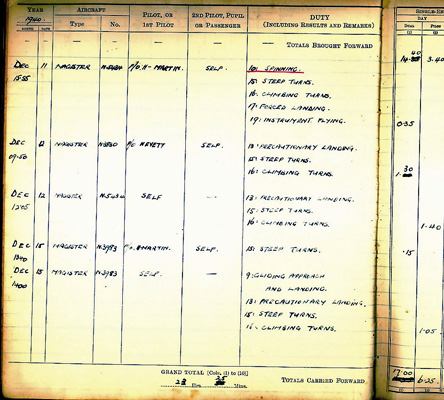 YEAR AIRCRAFT PILOT, OR 2ND PILOT, PUPIL DUTY
1940. Type No. 1ST PILOT OR PASSENGER (INCLUDING RESULTS AND REMARKS)
DAY
— — — — — TOTALS BROUGHT FORWARD
DEC 11 MAGISTER MARTIN. SELF. 10: SPINNING. 3.40
1555 15: STEEP TURNS.
16: CLIMBING TURNS.
17: FORCED LANDING.
19: INSTRUMENT FLYING. 0.35
DEC 12 MAGISTER SELF. 13: PRECAUTIONARY LANDING.
09.50 15: STEEP TURNS. 30
16: CLIMBING TURNS.
DEC 12 MAGISTER SELF — 13: PRECAUTIONARY LANDING.
15: STEEP TURNS.
16: CLIMBING TURNS. 1.40
DEC 15 MAGISTER N3983 MARTIN. SELF. 15: STEEP TURNS. .15
1340
DEC 15 MAGISTER N3983 SELF. — 9: GLIDING APPROACH
1400 AND LANDING.
13: PRECAUTIONARY LANDING.
15: STEEP TURNS.
16: CLIMBING TURNS. 1.05
GRAND TOTAL [Cols. (1) to (10)]
Hrs. Mins. TOTALS CARRIED FORWARD 7.00 6.25